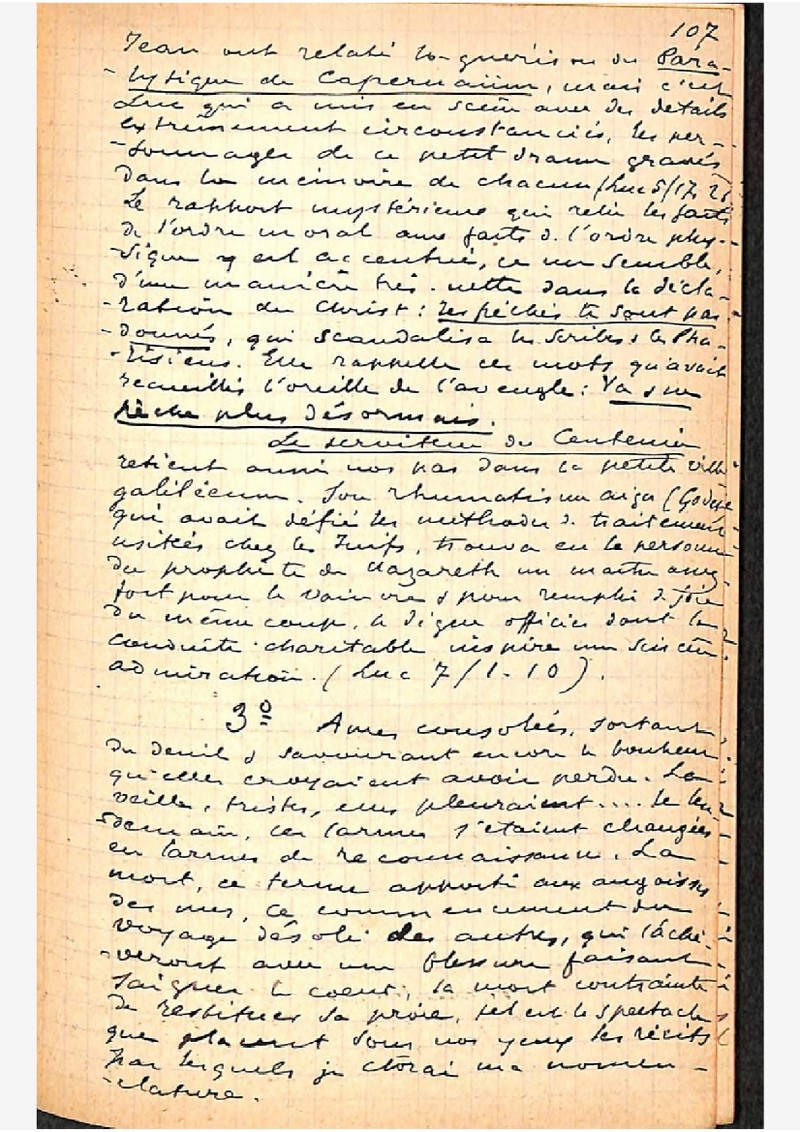 107
Jean ont relaté la guérison du Para-
-lytique de Capernaüm, mais c'est
Luc qui a mis en scène avec des détails
extrêmement circonstanciés, les per-
-sonnages de ce petit drame gravés
dans la mémoire de chacun (Luc 5/17.
Le rapport mystérieux qui relie les faits
de l'ordre moral aux faits d. l'ordre phy-
-sique y est accentué, ce me semble,
d'une manière très-nette dans la décla-
-ration du Christ: tes péchés te sont par-
-donnés, qui scandalisa les scribes & les Pha-
-risiens. Elle rappelle ces mots qu'avait
recueillis l'oreille de l'aveugle: Va & ne
pèche plus désormais.
Le serviteur du Centenier
retient aussi nos pas dans la petite ville
galiléenne. Son rhumatisme aigu (Godet
qui avait défié les méthodes d. traitement
usitées chez les Juifs, trouva en la personne
du prophète de Nazareth un maître assez
fort pour le vaincre & pour remplir d. joie
du même coup, le digne officier dont la
conduite charitable inspire une sincère
admiration. (Luc 7/1-10).
3º Ames consolées, sortant
du deuil & savourant encore le bonheur
qu'elles croyaient avoir perdu. La
veille, tristes, elles pleuraient.... le len-
-demain, ces larmes s'étaient changées
en larmes de reconnaissance. La
mort, ce terme apporté aux angoisses
des uns, ce commencement du
voyage désolé des autres, qui l'achè-
-veront avec une blessure faisant
saigner le coeur; la mort contrainte
de restituer sa proie, tel est le spectacle
que placent sous nos yeux les récits
par lesquels je clorai ma nomen-
-clature.